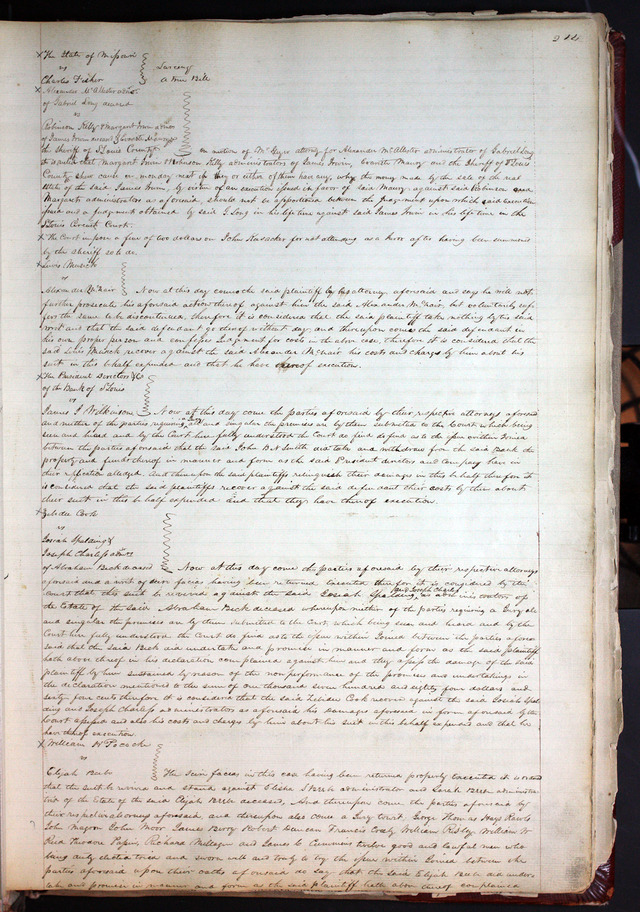 The State of Missouri
vs
Charles Fisher
Larceny
A True Bill
Alexander McAllister admr
of Gabriel Long deceased
vs
Robinson Kelly & Margaret Irwin admrs
of James Irwin deceased &
the Sheriff of St Louis County
on motion of attorney for Alexander McAllister administrator of Gabriel Long
it is ordered that Margaret Irwin & Robinson Kelly administrators of James Irwin, and the Sheriff of St Louis
County shew cause on monday next if they or either of them have any, why the money made by the sale of the real
estate of the said James Irwin, by virtue of an execution issued in favor of said against said Robinson and
Margaret administrators as aforesaid, should not be apportioned between the judgment upon which said execution
issued and a judgment obtained by said G Long in his life time against said James Irwin in his life time in the
St Louis Circuit Court.
The Court impose a fine of two dollars on John for not attending as a Juror after having been summoned
by the Sheriff so to do.
Lewis Musick
vs
Alexander McNair
Now at this day comes the said plaintiff by his attorney aforesaid and says he will not
further prosecute his aforesaid action thereof against him the said Alexander McNair, but voluntarily suf-
fers the same to be discontinued, therefore it is considered that the said plaintiff take nothing by his said
writ and that the said defendant go thereof without day and thereupon comes the said defendant in
his own proper person and confesses Judgment for costs in the above case, therefore it is considered that the
said Lewis Musick recover against the said Alexander McNair his costs and charges by him about his
suit in this behalf expended and that he have thereof execution.
The President Directors &C
of the Bank of St Louis
vs
James J Wilkinson
Now at this day come the parties aforesaid by their respective attorneys aforesaid
and neither of the parties requiring all and singular the premises are by them submitted to the Court which being
seen and heard and by the Court here fully understood the Court do find as to the issue within Joined
between the parties aforesaid that the said John did take and withdraw from the said Bank the
property and funds thereof in manner and form as the said President directors and company have in
their replication alledged. And thereupon the said plaintiffs relinquish their damages in this behalf therefore it
is considered that the said plaintiffs recover against the said defendant their costs by them about
their suit in this behalf expended and that they have thereof execution.
Zebedee Cook
vs
Josiah Spalding &
Joseph Charless admrs
of Abraham Beck deceased
Now at this day come the parties aforesaid by their respective attorneys
aforesaid and a writ of scire facias having been returned executed therefor it is considered by the
Court that this suit be revived against the said Josiah Spalding and Joseph Charless as administrators of
the Estate of the said Abraham Beck deceased whereupon neither of the parties requiring a Jury all
and singular the premises are by them submitted to the Court, which being seen and heard and by the
Court here fully understood the Court do find as to the issue within Joined between the parties afore-
said that the said Beck did undertake and promise in manner and form as the said plaintiff
hath above thereof in his declaration complained against him and they assess the damage of the said
plaintiff by him sustained by reason of the non performance of the promises and undertakings in
the declaration mentioned to the sum of one thousand seven hundred and eighty four dollars and
sixty four cents therefore it is considered that the said Zebedee Cook recover against the said Josiah Spal-
ding and Joseph Charless administrators as aforesaid his damages aforesaid in form aforesaid by the
Court assessed and also his costs and charges by him about his suit in this behalf expended and that he
have thereof execution.
William H Pocock
vs
Elijah Beeb
The Scire facias in this case having been returned properly executed it is ordered
that the suit be revived and stand against Elisha administrator and Sarah Beeb administra-
trix of the Estate of the said Elijah Beeb deceased, And thereupon come the parties aforesaid by
their respective attorneys aforesaid, and thereupon also come a Jury to wit, George Thomas Hays
John Magron John Moor James Robert Duncan Francis William Risley William W
Reed Theodore Papin, Richard and James C twelve good and lawful men who
being duly elected tried and sworn well and truly to try the issue within Joined between the
parties aforesaid upon their oaths aforesaid do say that the said Elijah Beeb did under-
take and promise in manner and form as the said plaintiff hath above thereof complained